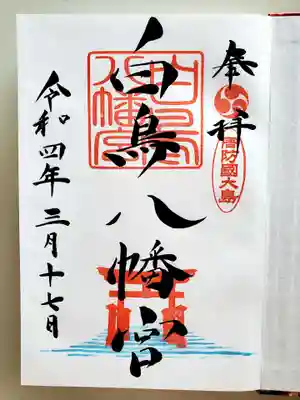 奉拝
周防國大島
白鳥八幡宮
令和四年三月十七日